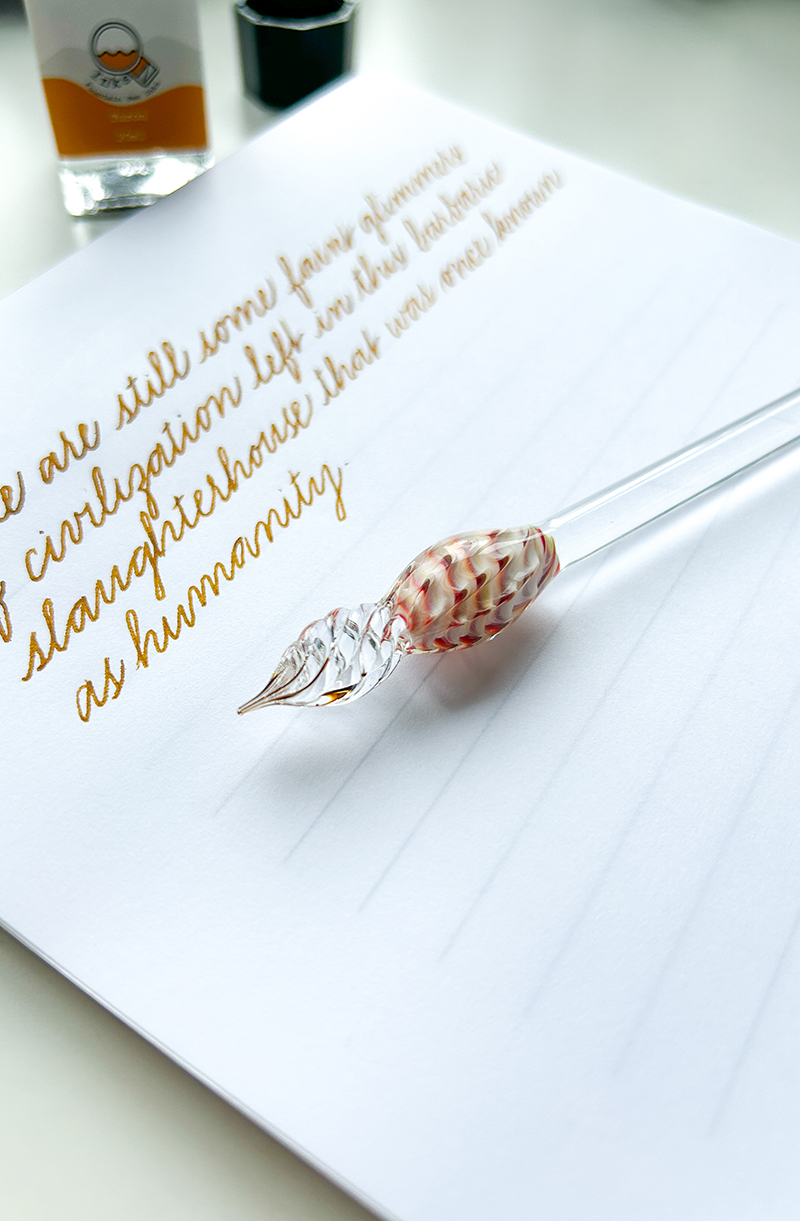 e are still some faint glimmers
f civilization left in this barbaric
slaughterhouse that was once known
as humanity.